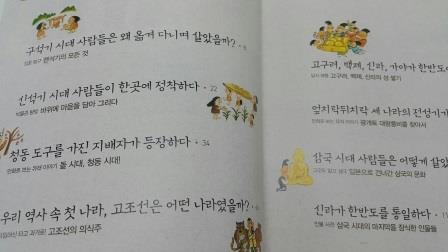 구석기 시대 사람들은 왜 옮겨 다니며 살았을까? • 8
뗀석기의 모든 것
신석기 시대 사람들이 한곳에 정착하다 • 22
바위에 마음을 담아 그리다
청동 도구를 가진 지배자가 등장하다 • 34
돌 시대, 청동 시대!
우리 역사 속 첫 나라, 고조선은 어떤 나라였을까?
고조선의 의식주
고구려, 백제, 신라, 가야가 한반도에
고구려, 백제, 신라의 성 쌓기
엎치락뒤치락 세 나라의 전성기
광개토 대왕릉비를 찾아서
삼국 시대 사람들은 어떻게 살았
일본으로 건너간 삼국의 문화
신라가 한반도를 통일하다
삼국 시대의 마지막을 장식한 인물들